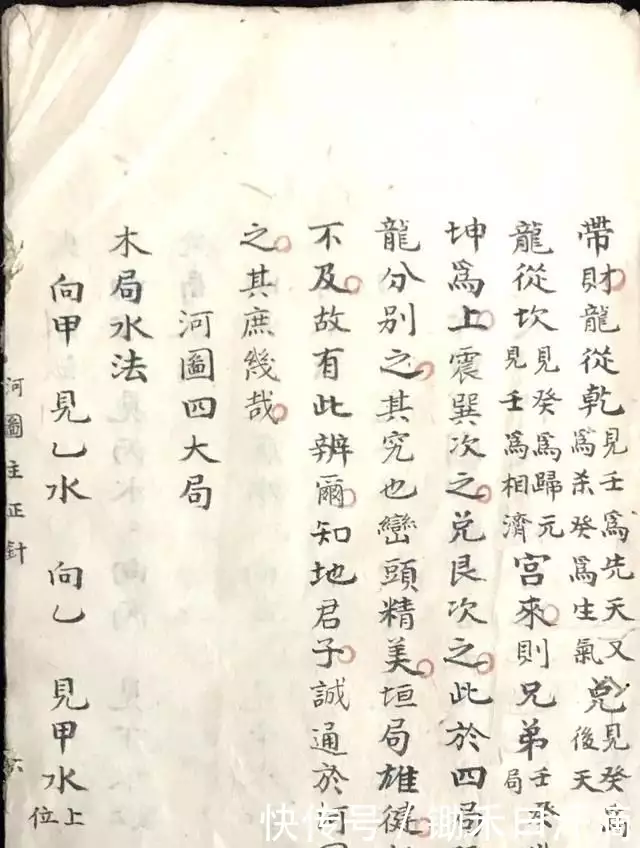 帶財龍從乾見壬爲先天又爲杀癸爲生氣兌見癸爲後天
龍從坎見癸爲歸元見壬爲相濟宮來則兄弟壬癸局
坤爲上震巽次之兌艮次之此於四局
龍分別之其究也巒頭精美垣局雄健
不及故有此辨爾知地君子誠通於河
之其庶幾哉
河圖四大局
木局水法
向甲 見乙水 向乙 見甲水上位
河圖主正針
快传号/锄禾日